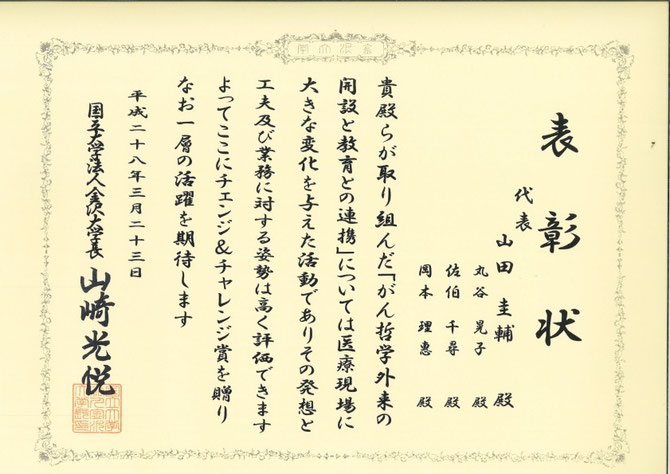 表彰状
代表 山田圭輔 殿
丸谷晃子 殿
佐伯千尋 殿
岡本理恵 殿
貴殿らが取り組んだ「がん哲学外来の
開設と教育との連携」については医療現場に
大きな変化を与えた活動でありその発想と
工夫及び業務に対する姿勢は高く評価できます
よってここにチェンジ&チャレンジ賞を贈り
なお一層の活躍を期待します
平成二十八年三月二十三日
国立大学法人金沢大学長 山崎光悦